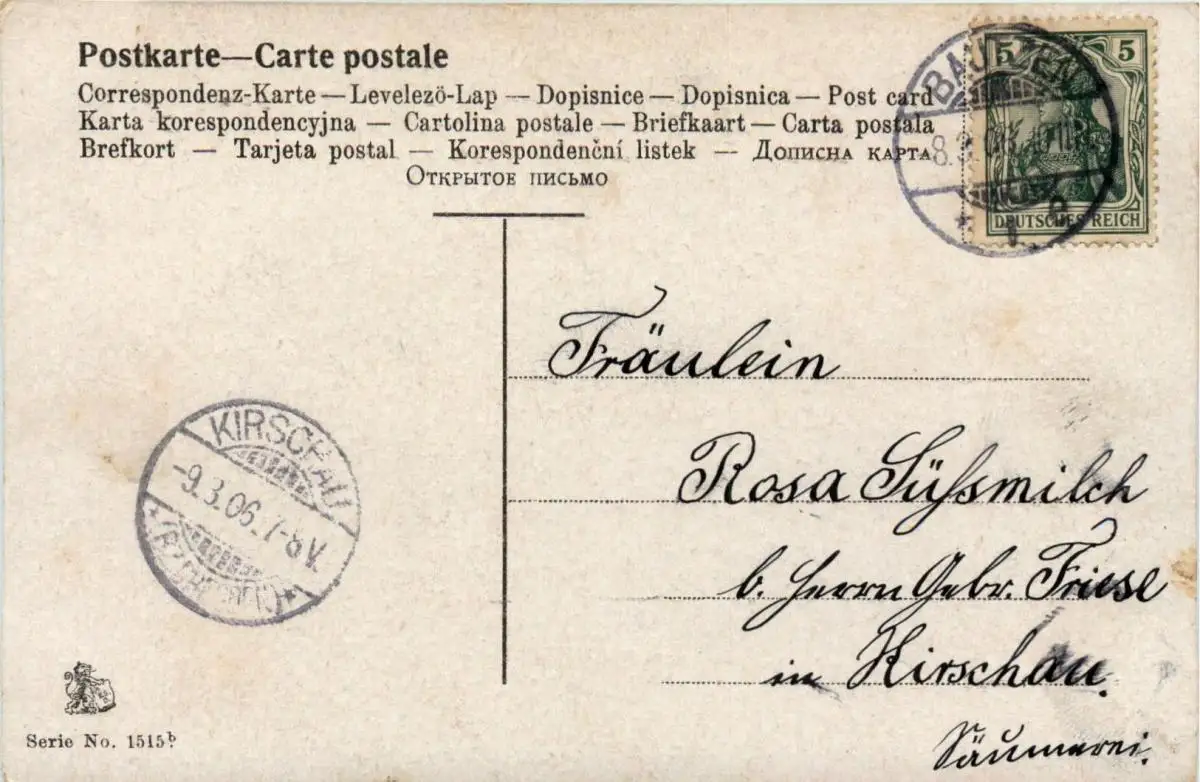 Postkarte—Carte postale
Correspondenz-Karte — Levelezö-Lap — Dopisnice — Dopisnica — Post card
Karta korespondencyjna — Cartolina postale — Briefkaart — Carta postala
Brefkort — Tarjeta postal — Korespondenční listek — Дописна карта
Открытое письмо
5 5
DEUTSCHES REICH
BAUTZEN
* 1
Fräulein
Rosa Süßsmilch
b. Herrn Gebr. Friese
in Kirschau.
Säumerei.
KIRSCHAU
-9.3.06. 7-8 V.
Serie No. 1515b